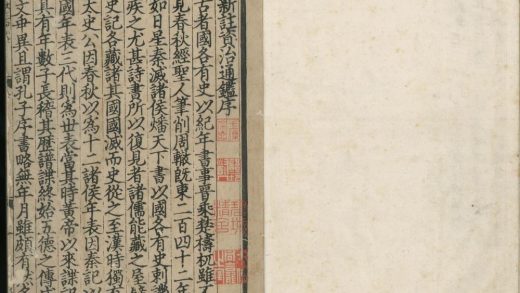 新註資治通鑑序
古者國各有史以紀年書事晉乘楚檮杌雖不
見春秋經聖人筆削周轍既東二百四十二年
如日星秦滅諸侯燔天下書以國各有史刺譏
疾之尤甚詩書所以復見者諸儒能藏之屋壁
史記各藏諸其國國滅而史從之至漢時獨有
太史公因春秋以爲十二諸侯年表因秦記以
國年表三代則爲世表當其時黃帝以來諜記
具有年數子長稽其歷譜諜終始五德之傳
文乖異且謂孔子序書略無年月雖頗有然多